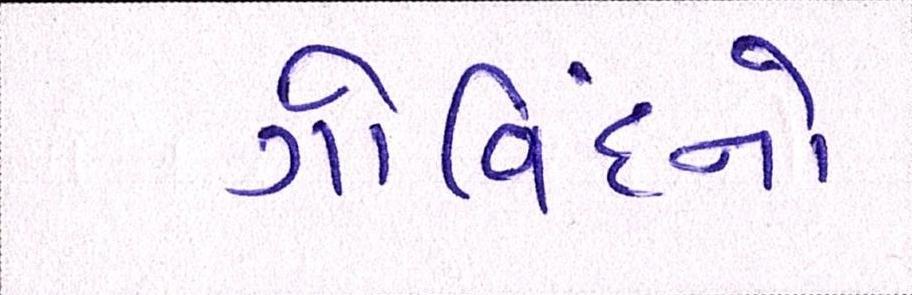 ગોવિંદનો